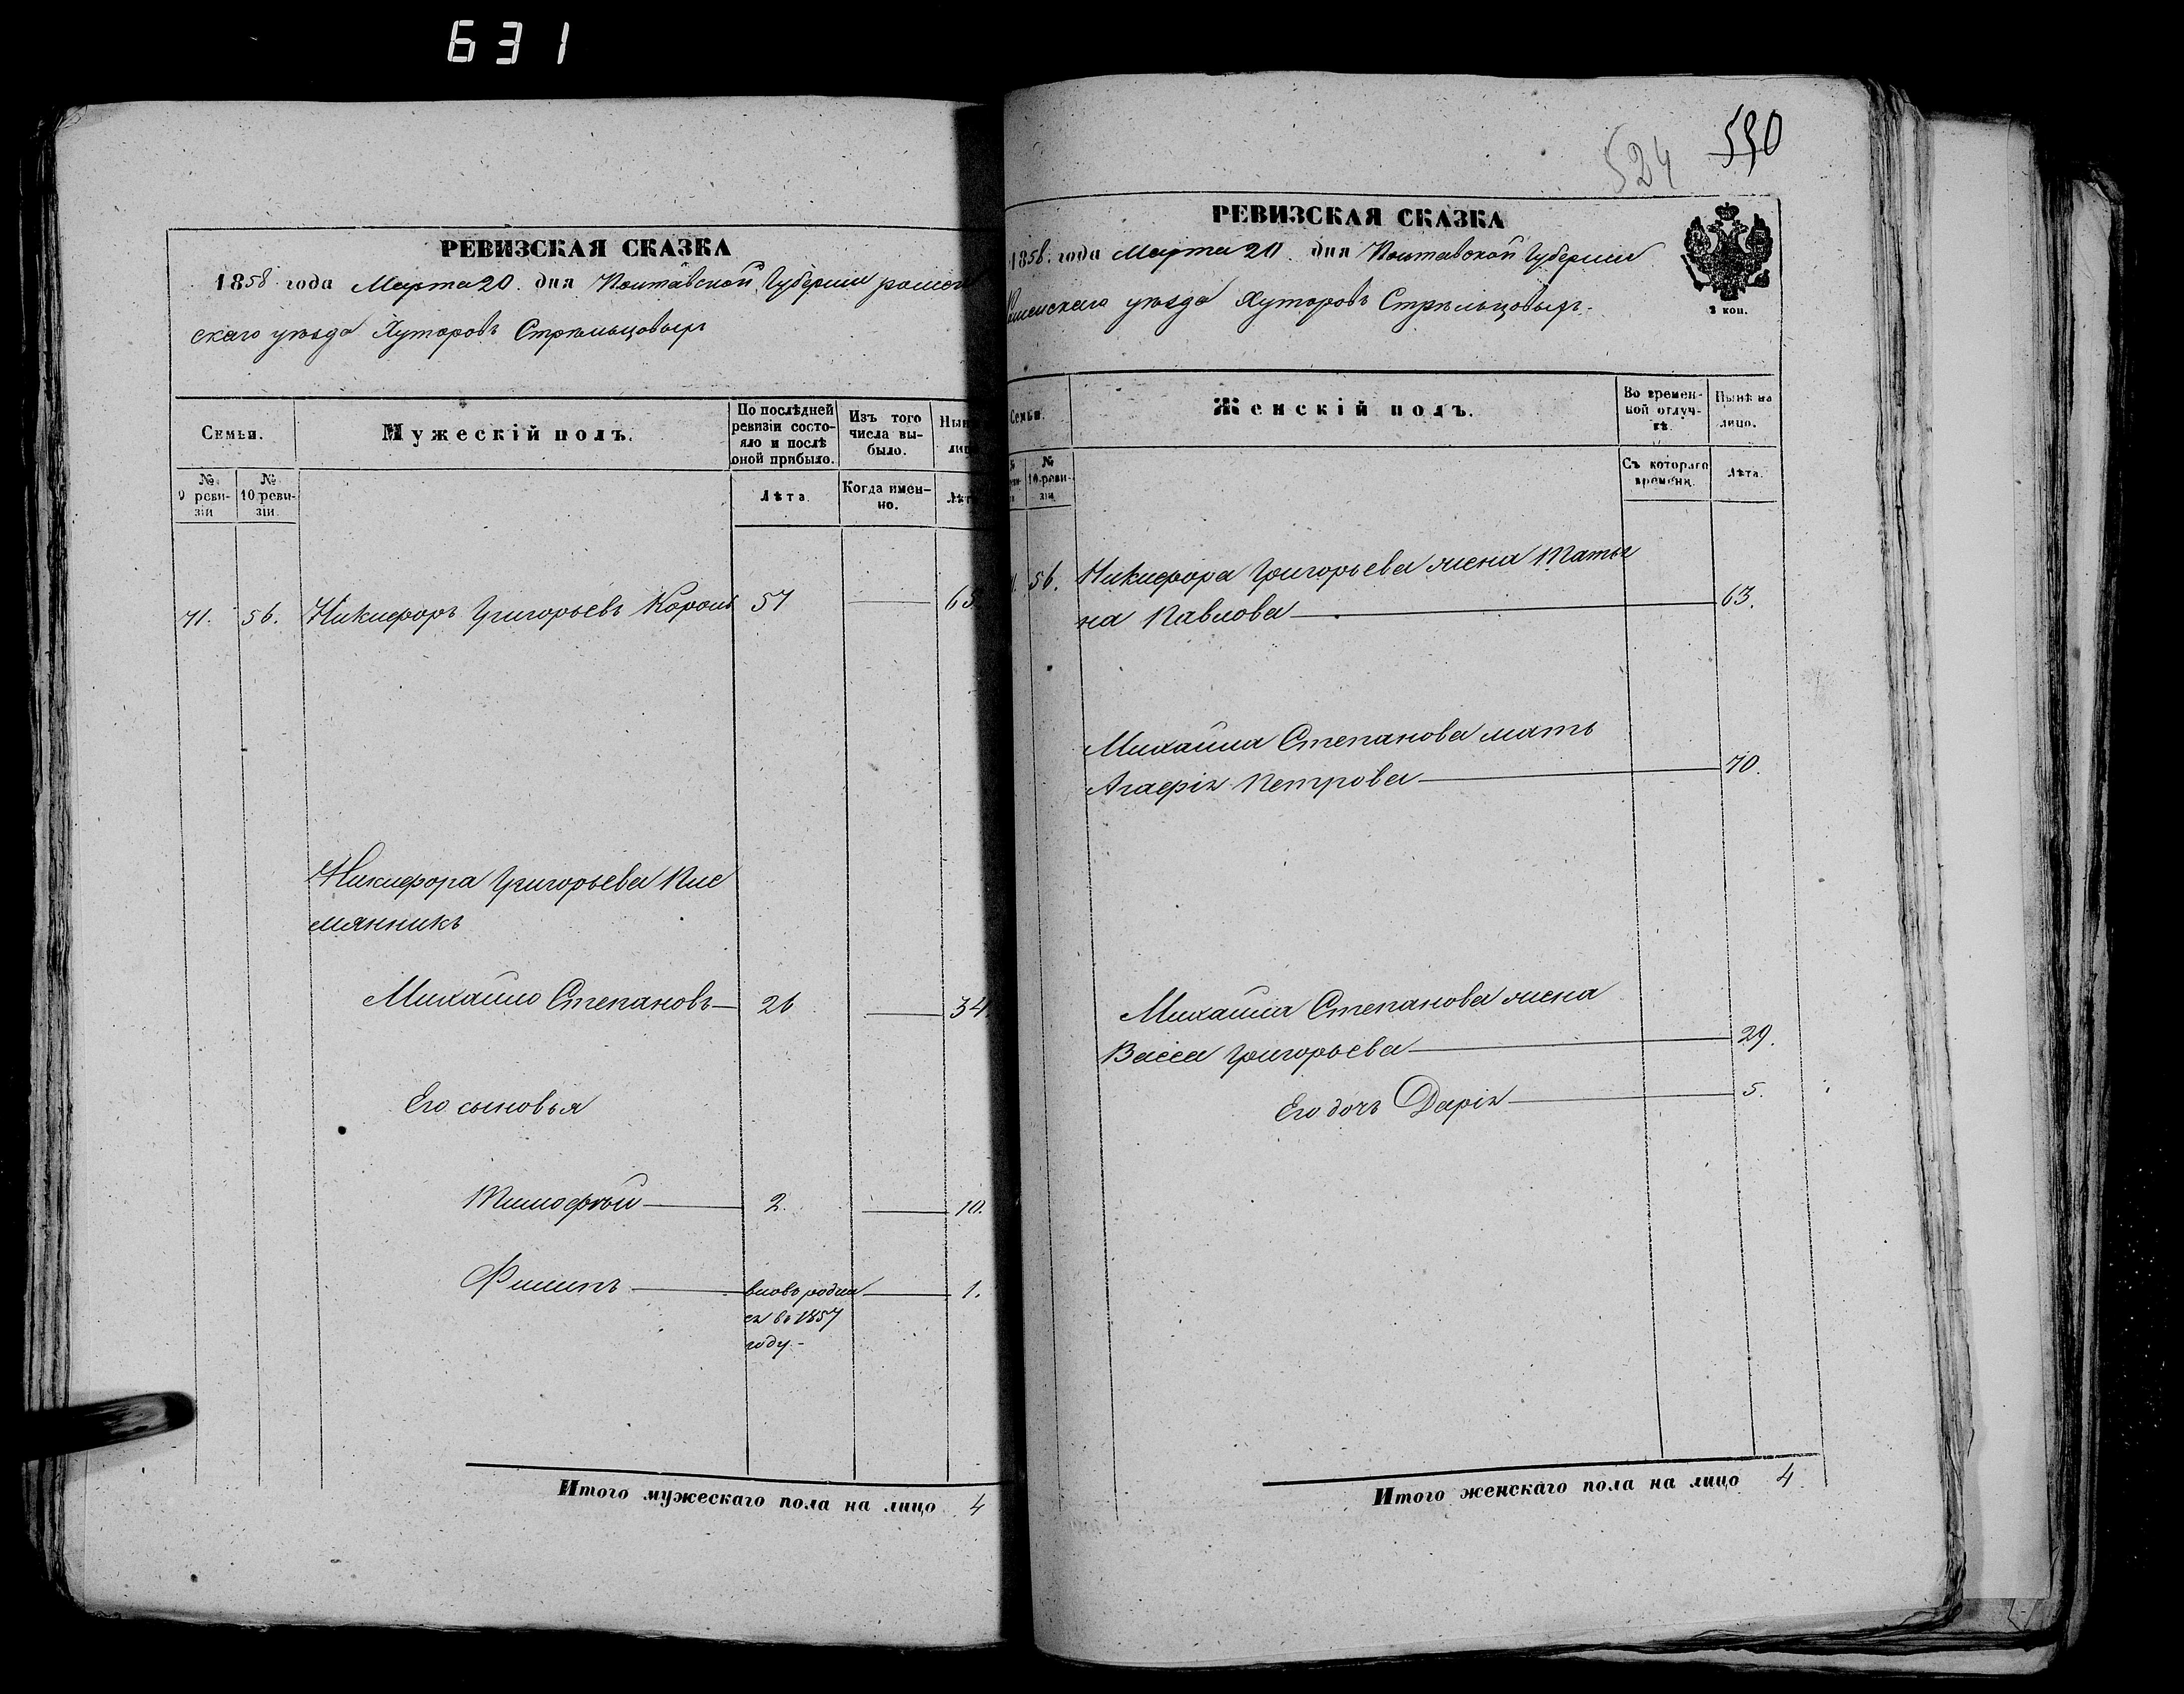 631
РЕВИЗСКАЯ СКАЗКА
1858 года Марта 20. дня Полтавской Губернии ромен
скаго уѣзда Хуторовъ Стрѣльцовыхъ
Семьи.
Мужескій полъ.
По послѣдней ревизіи состо-
яло и послѣ оной прибыло.
Изъ того числа вы-
было.
№ 9 реви-
зіи
№ 10 реви-
зіи.
Лѣта.
Когда имен-
но.
71. 56. Никифоръ Григорьевъ Король 57
Никифора Григорьева Пле
мянникъ
Михайло Степановъ 26 34
Его сыновья
Тимофѣй 2. 10.
Филипъ вновь родил 1.
ся во 1857
году.-
Итого мужескаго пола на лицо 4
524 590
РЕВИЗСКАЯ СКАЗКА
1858. года Марта 20. дня Полтавской Губернии
Роменскаго уѣзда Хуторовъ Стрѣльцовыхъ.
2 коп.
Семьи.
Женскій полъ.
Во времен-
ной отлуч-
кѣ.
Нынѣ на
лицо.
№
10 реви-
зіи
Съ котораго
времени.
Лѣта.
56. Никифора Григорьева жена Татья
на Павлова 63.
Михайла Степанова мать
Агафія Петрова 70.
Михайла Степанова жена
Васса Григорьева 29.
Его дочь Дарія 5.
Итого женскаго пола на лицо 4